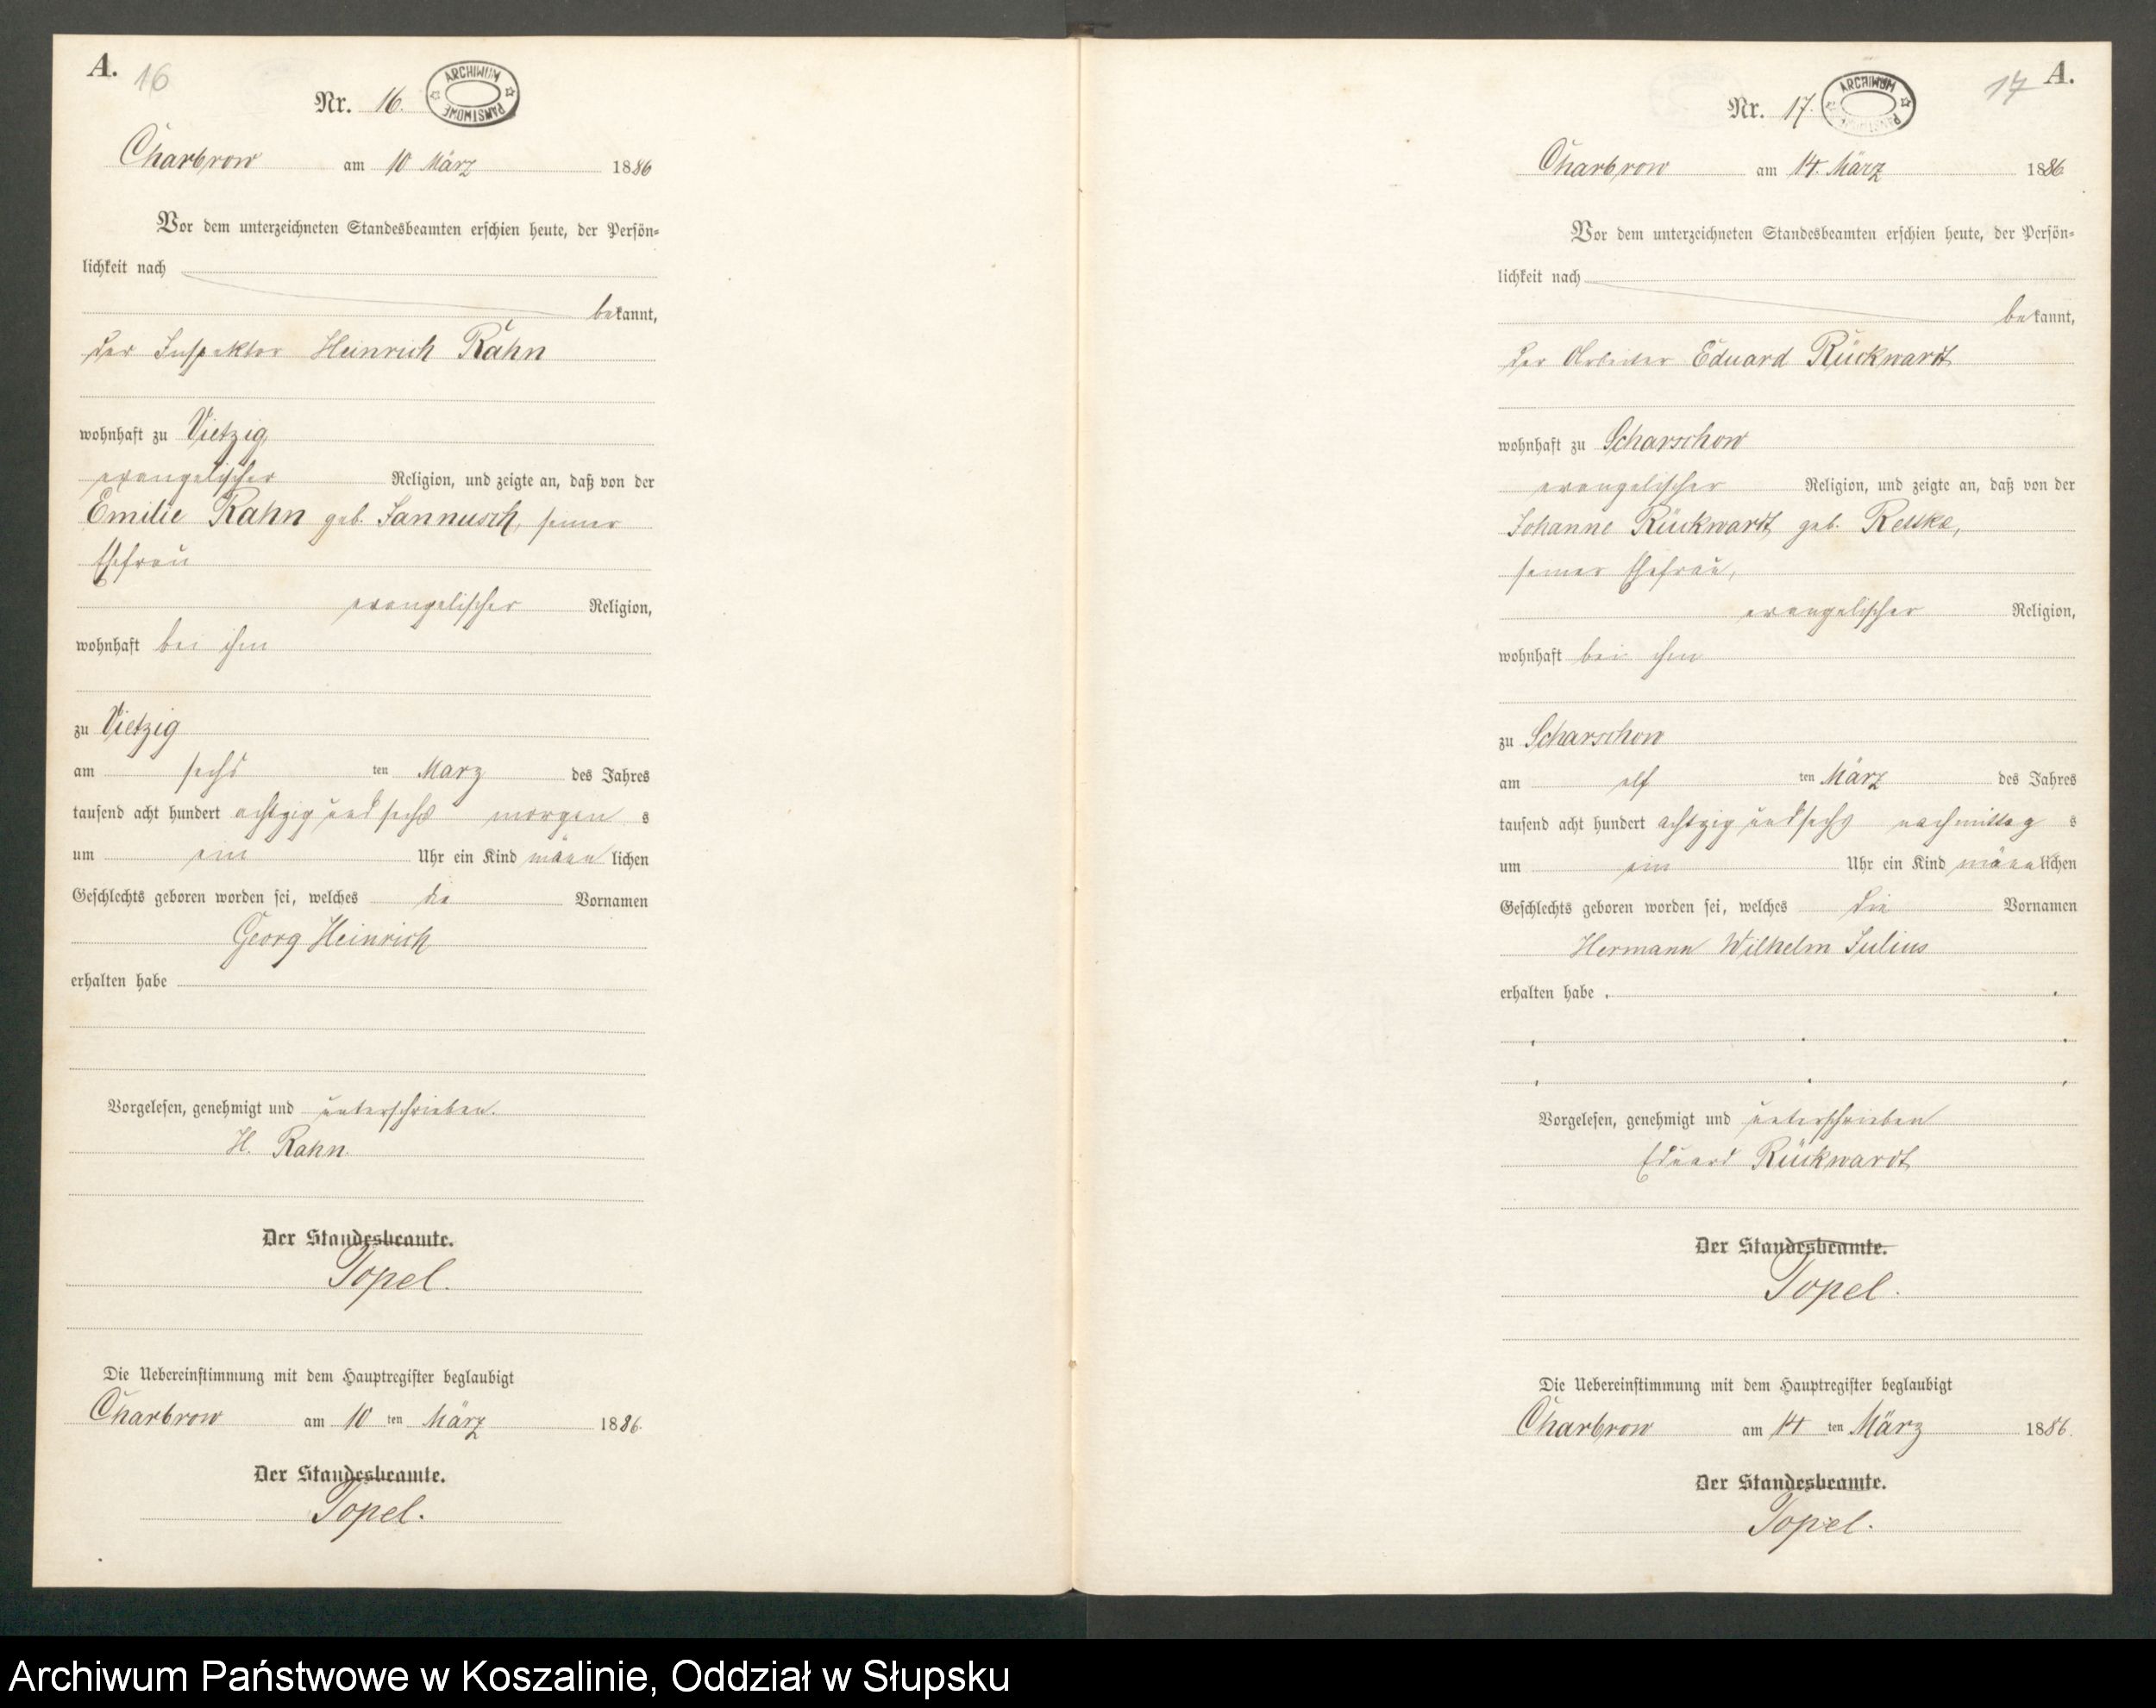 A. 16
Nr. 16.
ARCHIWUM PAŃSTWOWE
Charbrow am 10 März 1886
Vor dem unterzeichneten Standesbeamten erschien heute, der Persön-
lichkeit nach
bekannt,
der Inspektor Heinrich Rahn
wohnhaft zu Vietzig,
evangelischer Religion, und zeigte an, daß von der
Emilie Rahn geb. Jannusch, seiner
Ehefrau
evangelischer Religion,
wohnhaft bei ihm
zu Vietzig
am sechs ten März des Jahres
tausend acht hundert achtzig und sechs morgen s
um ein Uhr ein Kind männ lichen
Geschlechts geboren worden sei, welches die Vornamen
Georg Heinrich
erhalten habe
Vorgelesen, genehmigt und unterschrieben.
H. Rahn.
Der Standesbeamte.
Topel.
Die Uebereinstimmung mit dem Hauptregister beglaubigt
Charbrow am 10 ten März 1886.
Der Standesbeamte.
Topel.
17 A.
Nr. 17.
ARCHIWUM PAŃSTWOWE
Charbrow am 14. März 1886
Vor dem unterzeichneten Standesbeamten erschien heute, der Persön-
lichkeit nach
bekannt,
der Arbeiter Eduard Rückwardt
wohnhaft zu Scharschow
evangelischer Religion, und zeigte an, daß von der
Johanne Rückwardt geb. Reske,
seiner Ehefrau,
evangelischer Religion,
wohnhaft bei ihm
zu Scharschow
am elf ten März des Jahres
tausend acht hundert achtzig und sechs nachmittag s
um ein Uhr ein Kind männlichen
Geschlechts geboren worden sei, welches die Vornamen
Hermann Wilhelm Julius
erhalten habe .
Vorgelesen, genehmigt und unterschrieben
Eduard Rückwardt
Der Standesbeamte.
Topel.
Die Uebereinstimmung mit dem Hauptregister beglaubigt
Charbrow am 14 ten März 1886.
Der Standesbeamte.
Topel.
Archiwum Państwowe w Koszalinie, Oddział w Słupsku